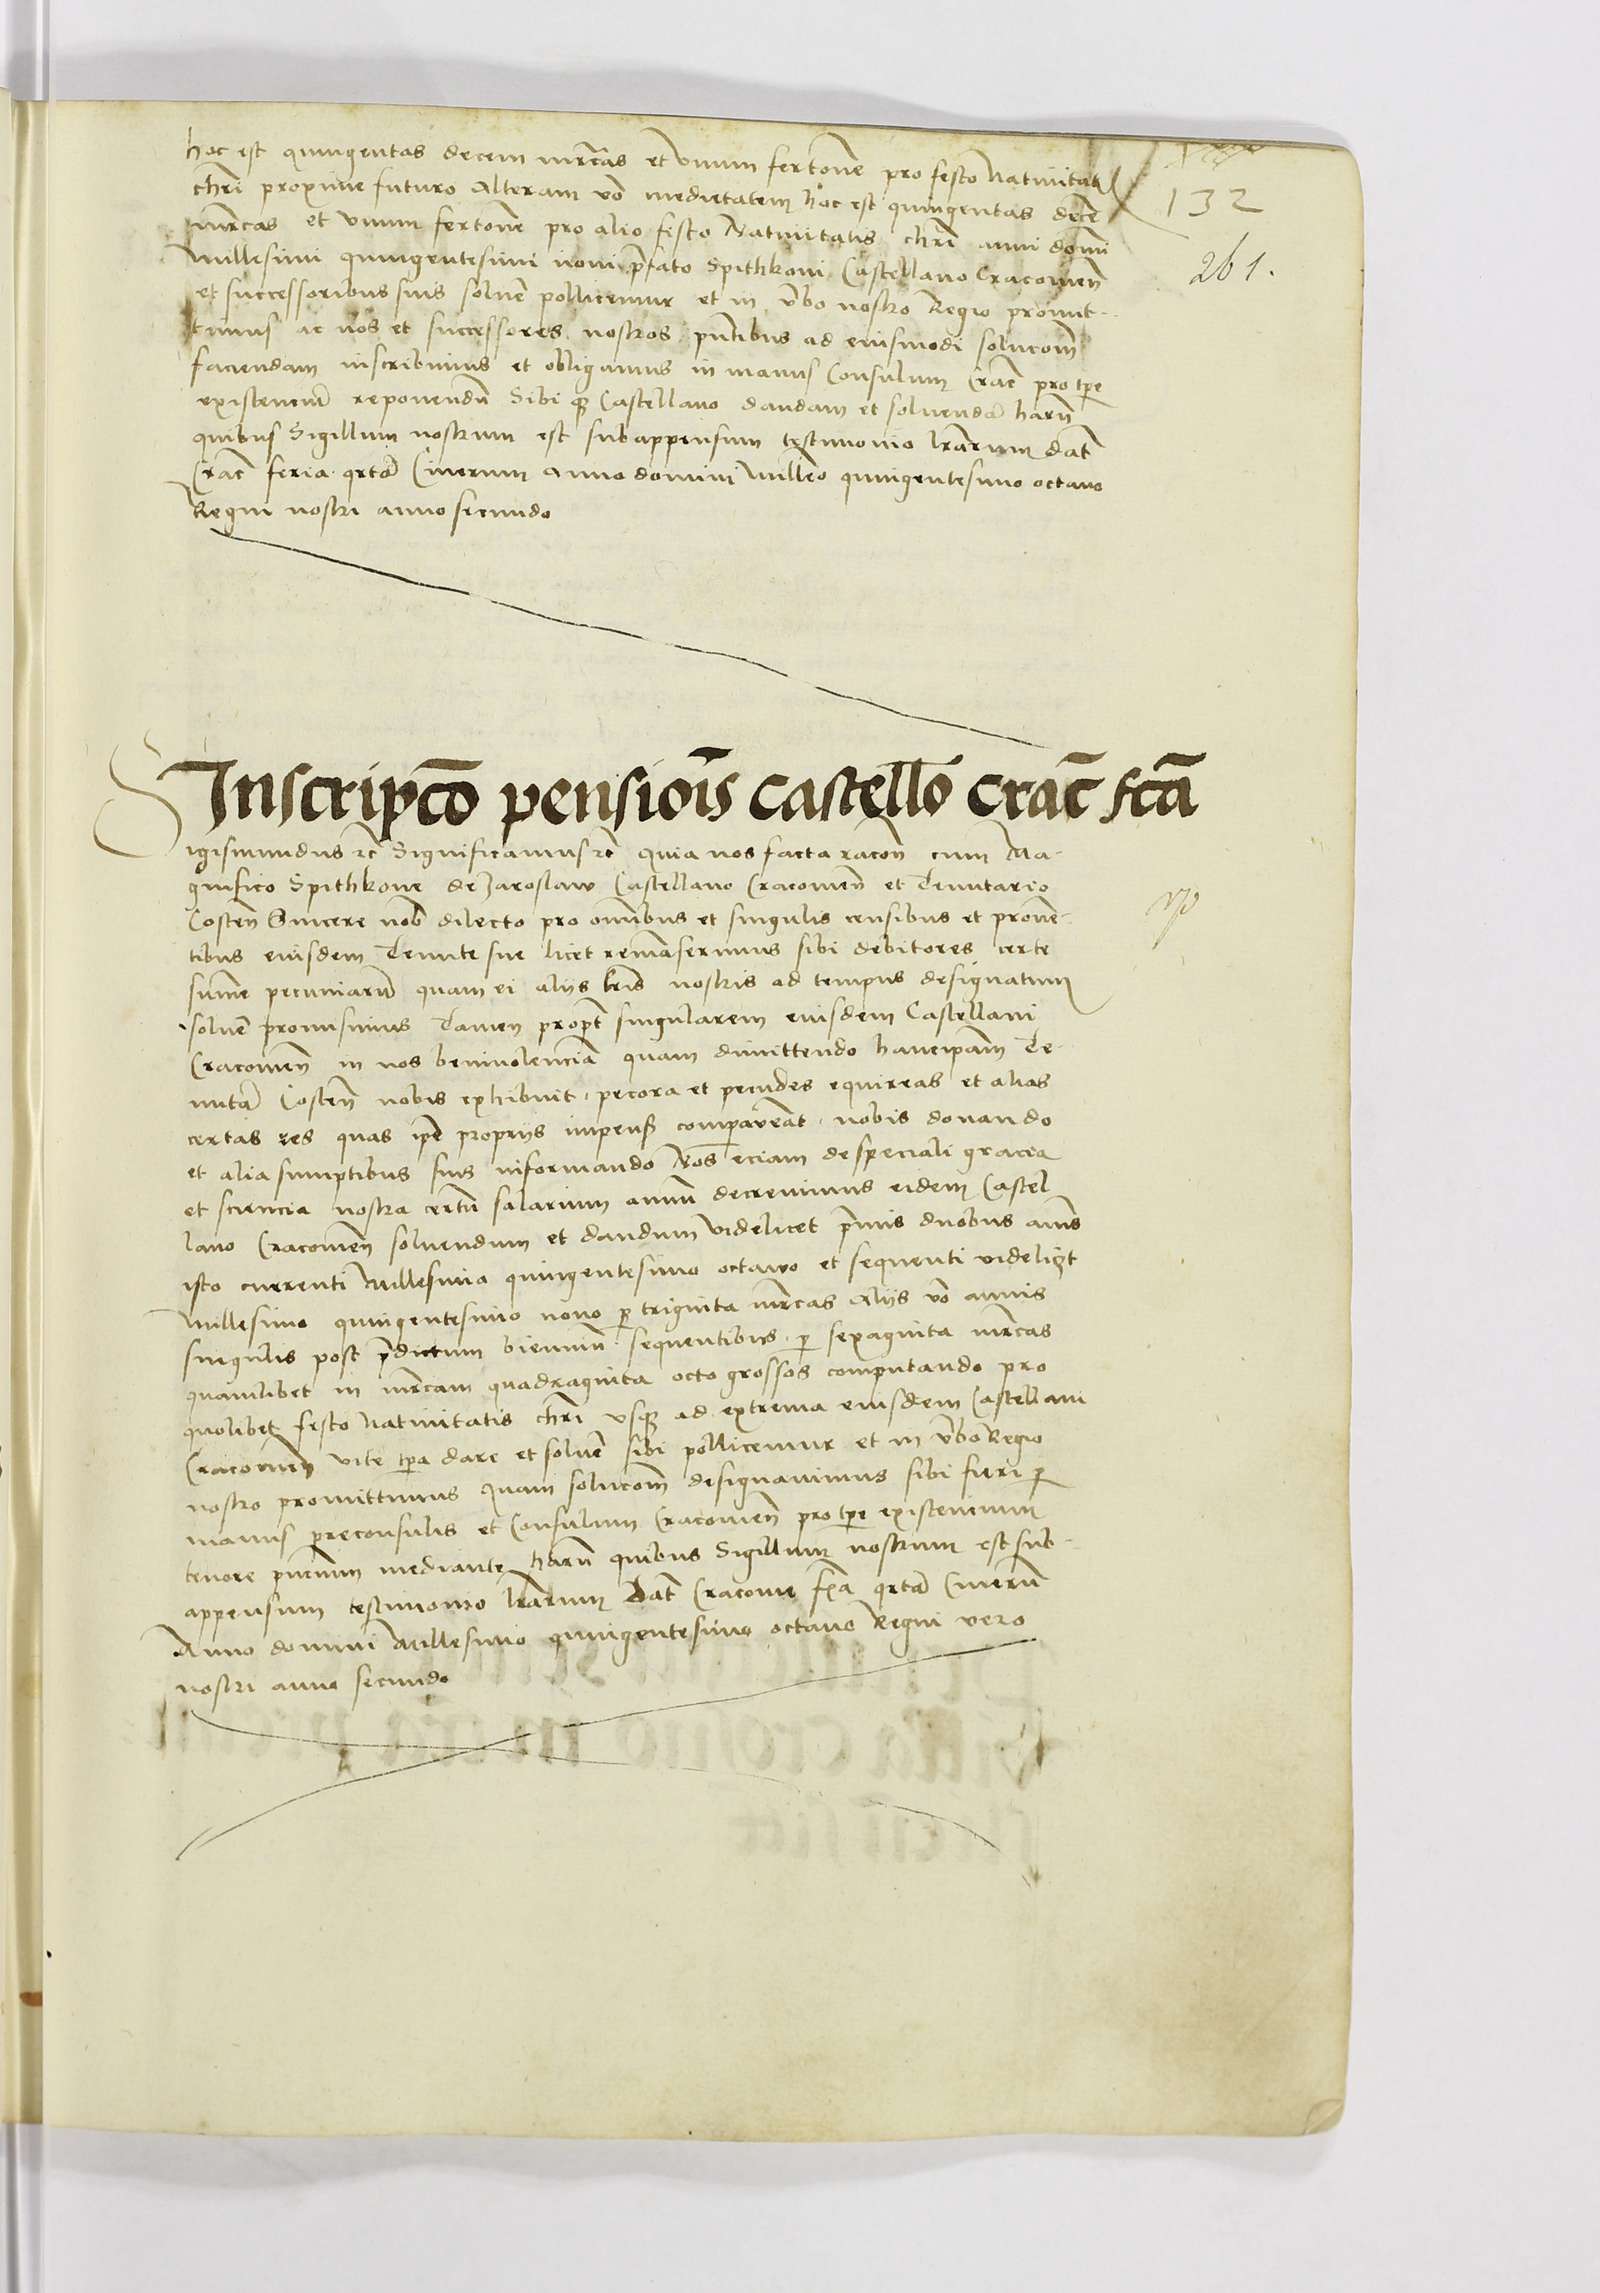 hoc est quingentas decem mrcas et vnum fertone pro festo Natiuitat
132
chri proxime futuro Alteram vo medietatem hoc est quingentas dece
mrcas et vnum fertone pro alio festo Natiuitatis chri anni domi
261.
Millesimi quingentesimi noni pfato Spithkoni Castellano Cracouien
et successoribus suis soluē pollicemur et in vbo nostro Regio promit-
timus ac nos et successores nostros pntibus ad eiusmodi solucom
faciendam inscribimus et obligamus in manus Consulum Crac pro tpe
existenciu reponendu Sibi q Castellano dandam et soluenda haru
quibus Sigillum nostrum est subappensum testimonio lrarum dat
Crac feria qrta Cinerum Anno domini Milleo quingentesimo octauo
Regni nostri anno secundo
Inscripco pensiois Castello Crac fca
Sigismundus rc Significamus rc Quia nos facta racon cum Ma-
gnifico Spithkone de Jaroslaw Castellano Cracouien et Tenutario
Costen Sincere nob dilecto pro omibus et singulis censibus et prouē-
tibus eiusdem Tenute sue licet remaserimus sibi debitores certe
summe pecuniaru quam ei aliis lris nostris ad tempus designatum
soluē promisimus Tamen propt singularem eiusdem Castellani
Cracouien in nos beniuolencia quam dimittendo hanc ipam Te-
nuta Costen nobis exhibuit pecora et pecudes equireas et alias
certas res quas ipe propriis impens comparauerat nobis donando
et alia sumptibus suis informando Nos eciam de speciali gracia
et sciencia nostra certu salarium annuu decreuimus eidem Castel
lano Cracouien soluendum et dandum videlicet pmis duobus anis
isto currenti Millesimo quingentesimo octauo et sequenti videlizt
Millesimo quingentesimo nono p triginta mrcas Aliis vo annis
singulis post pdictum bienniu sequentibus p sexaginta mrcas
quamlibet in mrcam quadraginta octo grossos computando pro
quolibet festo Natiuitatis chri vsq ad extrema eiusdem Castellani
Cracouien vite tpa dare et soluē sibi pollicemur et in vbo Regio
nostro promittimus Quam solucom designauimus sibi fieri p
manus preconsulis et Consulum Cracouien pro tpe existencium
tenore pncium mediante haru quibus Sigillum nostrum est sub-
appensum testimonio lrarum Dat Cracouie fria qrta Cineru
Anno domini Millesimo quingentesimo octauo Regni vero
nostri anno secundo